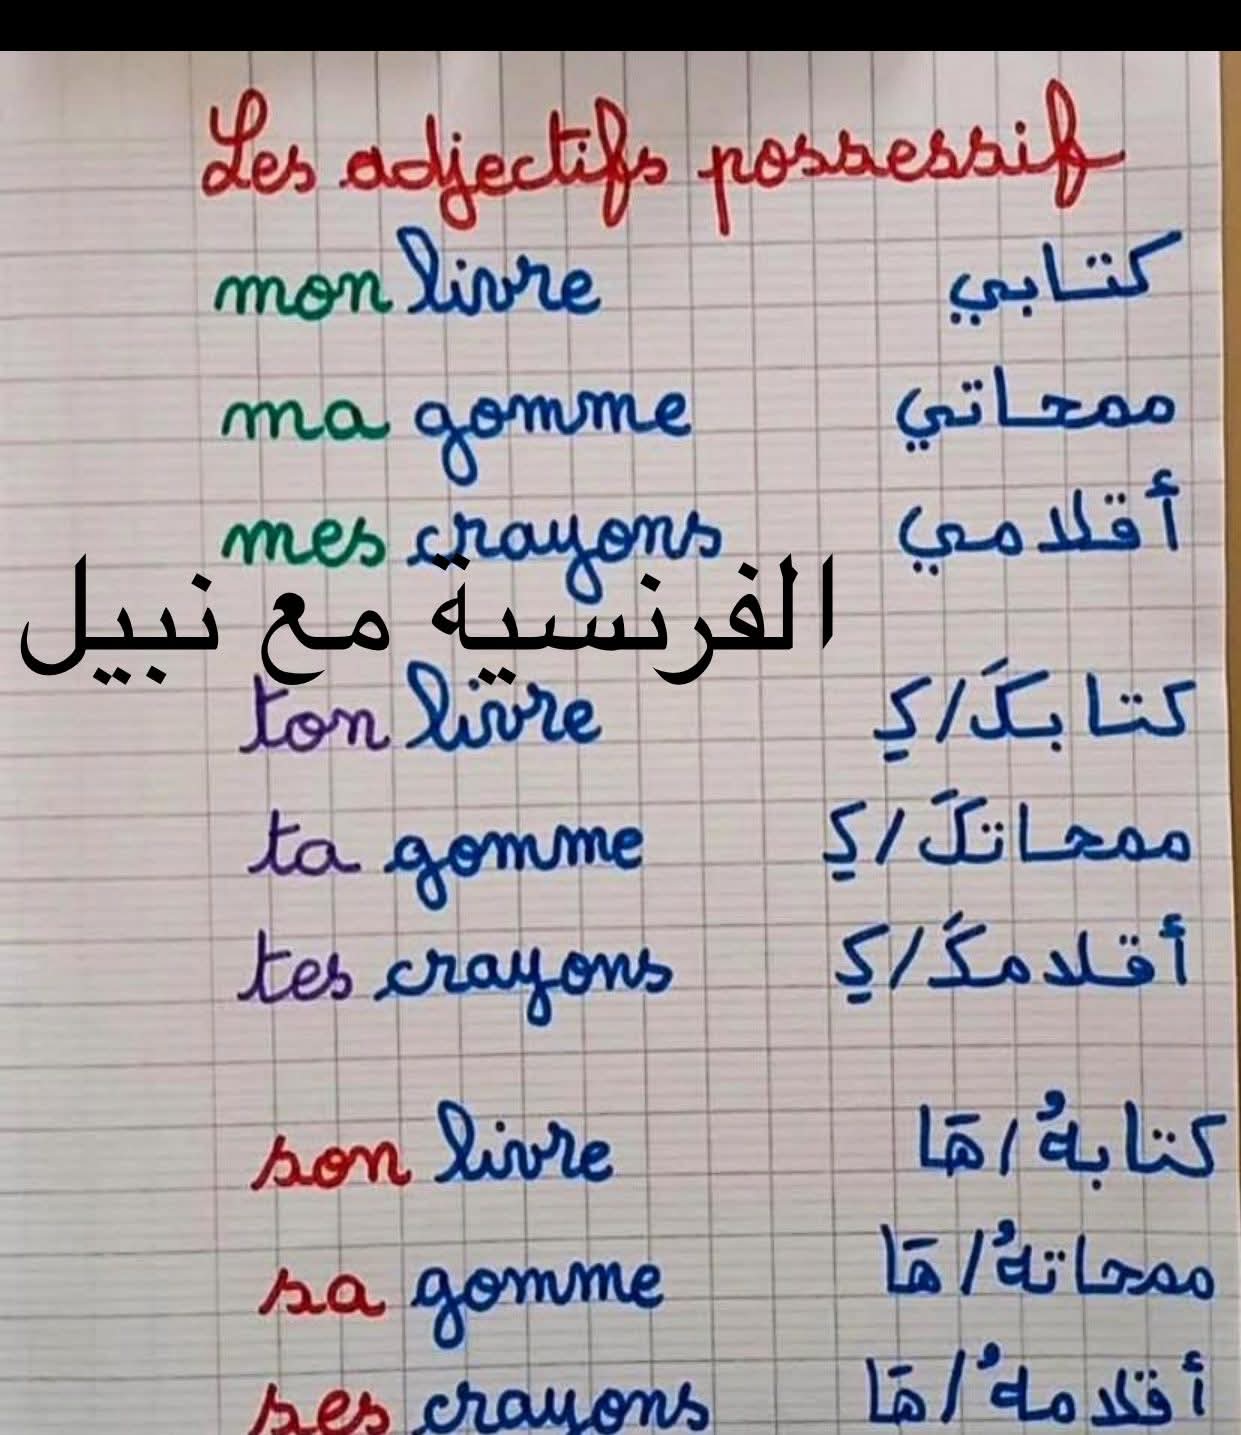 Les adjectifs possessif
mon livre كتابي
ma gomme ممحاتي
mes crayons أقلامي
الفرنسية مع نبيل
ton livre كتابكَ/كِ
ta gomme ممحاتكَ/كِ
tes crayons أقلامكَ/كِ
son livre كتابهُ/هَا
sa gomme ممحاتهُ/هَا
ses crayons أقلامهُ/هَا